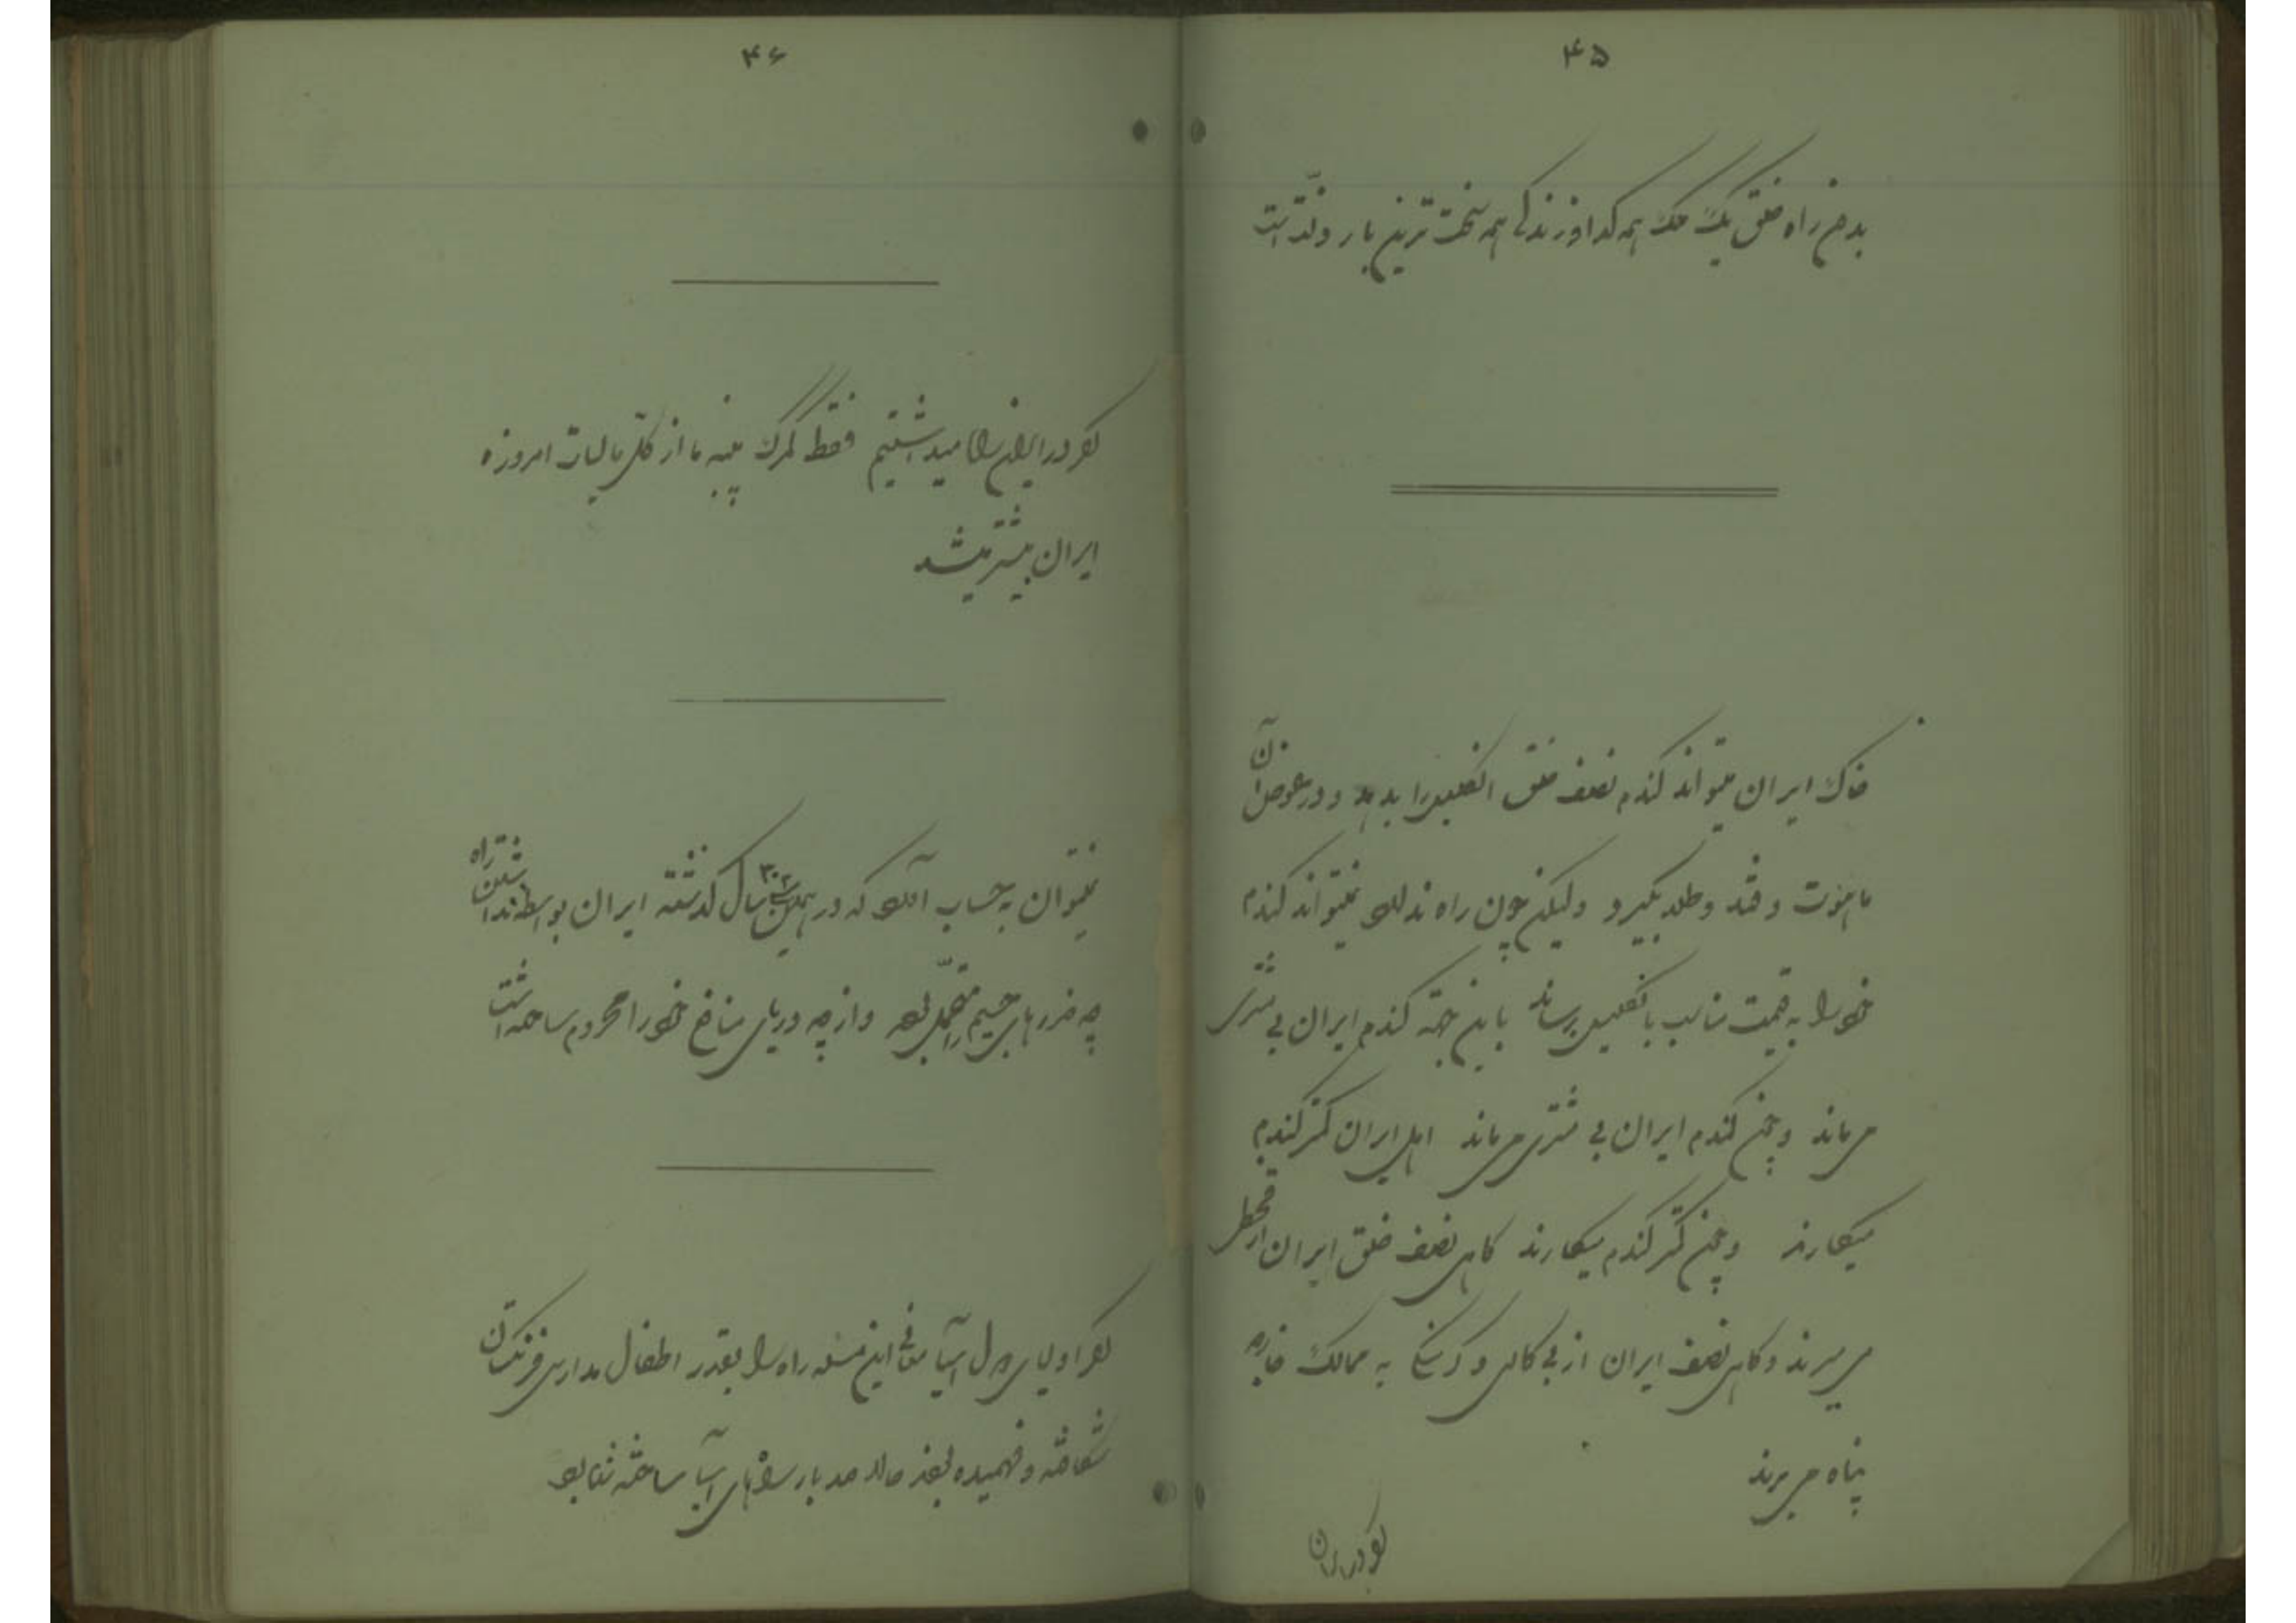 ۴۵
بدون راه خلق یک ملک همه گدا و زندگی همه سخت ترین بار ذلّت است
خاک ایران میتواند گندم نصف خلق انگلیس را بدهد و در عوض آن
ماهوت و قند و طلا بگیرد ولیکن چون راه ندارد نمیتواند گندم
خود را به قیمت مناسب بانگلیس برساند باین جهة گندم ایران بی مشتری
می ماند و چون گندم ایران بی مشتری می ماند اهل ایران کمتر گندم
میکارند و چون کمتر گندم میکارند گاهی نصف خلق ایران از قحطی
می میرند و گاهی نصف ایران از بی کاری و گرسنگی به ممالک خارجه
پناه می برند
اگر در ایران
۴۶
اگر در ایران راه میداشتیم فقط گمرک پنبه ما از کلّ مالیات امروزه
ایران بیشتر میشد
نمیتوان به حساب آورد که در همین سی ۳۰ سال گذشته ایران بواسطه نداشتن راه
چه ضررهای جسیم را متحمّل بوده و از چه دریای منافع خود را محروم ساخته است
اگر اولیای دول آسیا معانی این مسئله راه را بقدر اطفال مدارس فرنگستان
شکافته و فهمیده بودند حالا صد بار راه های آسیا ساخته شده بود